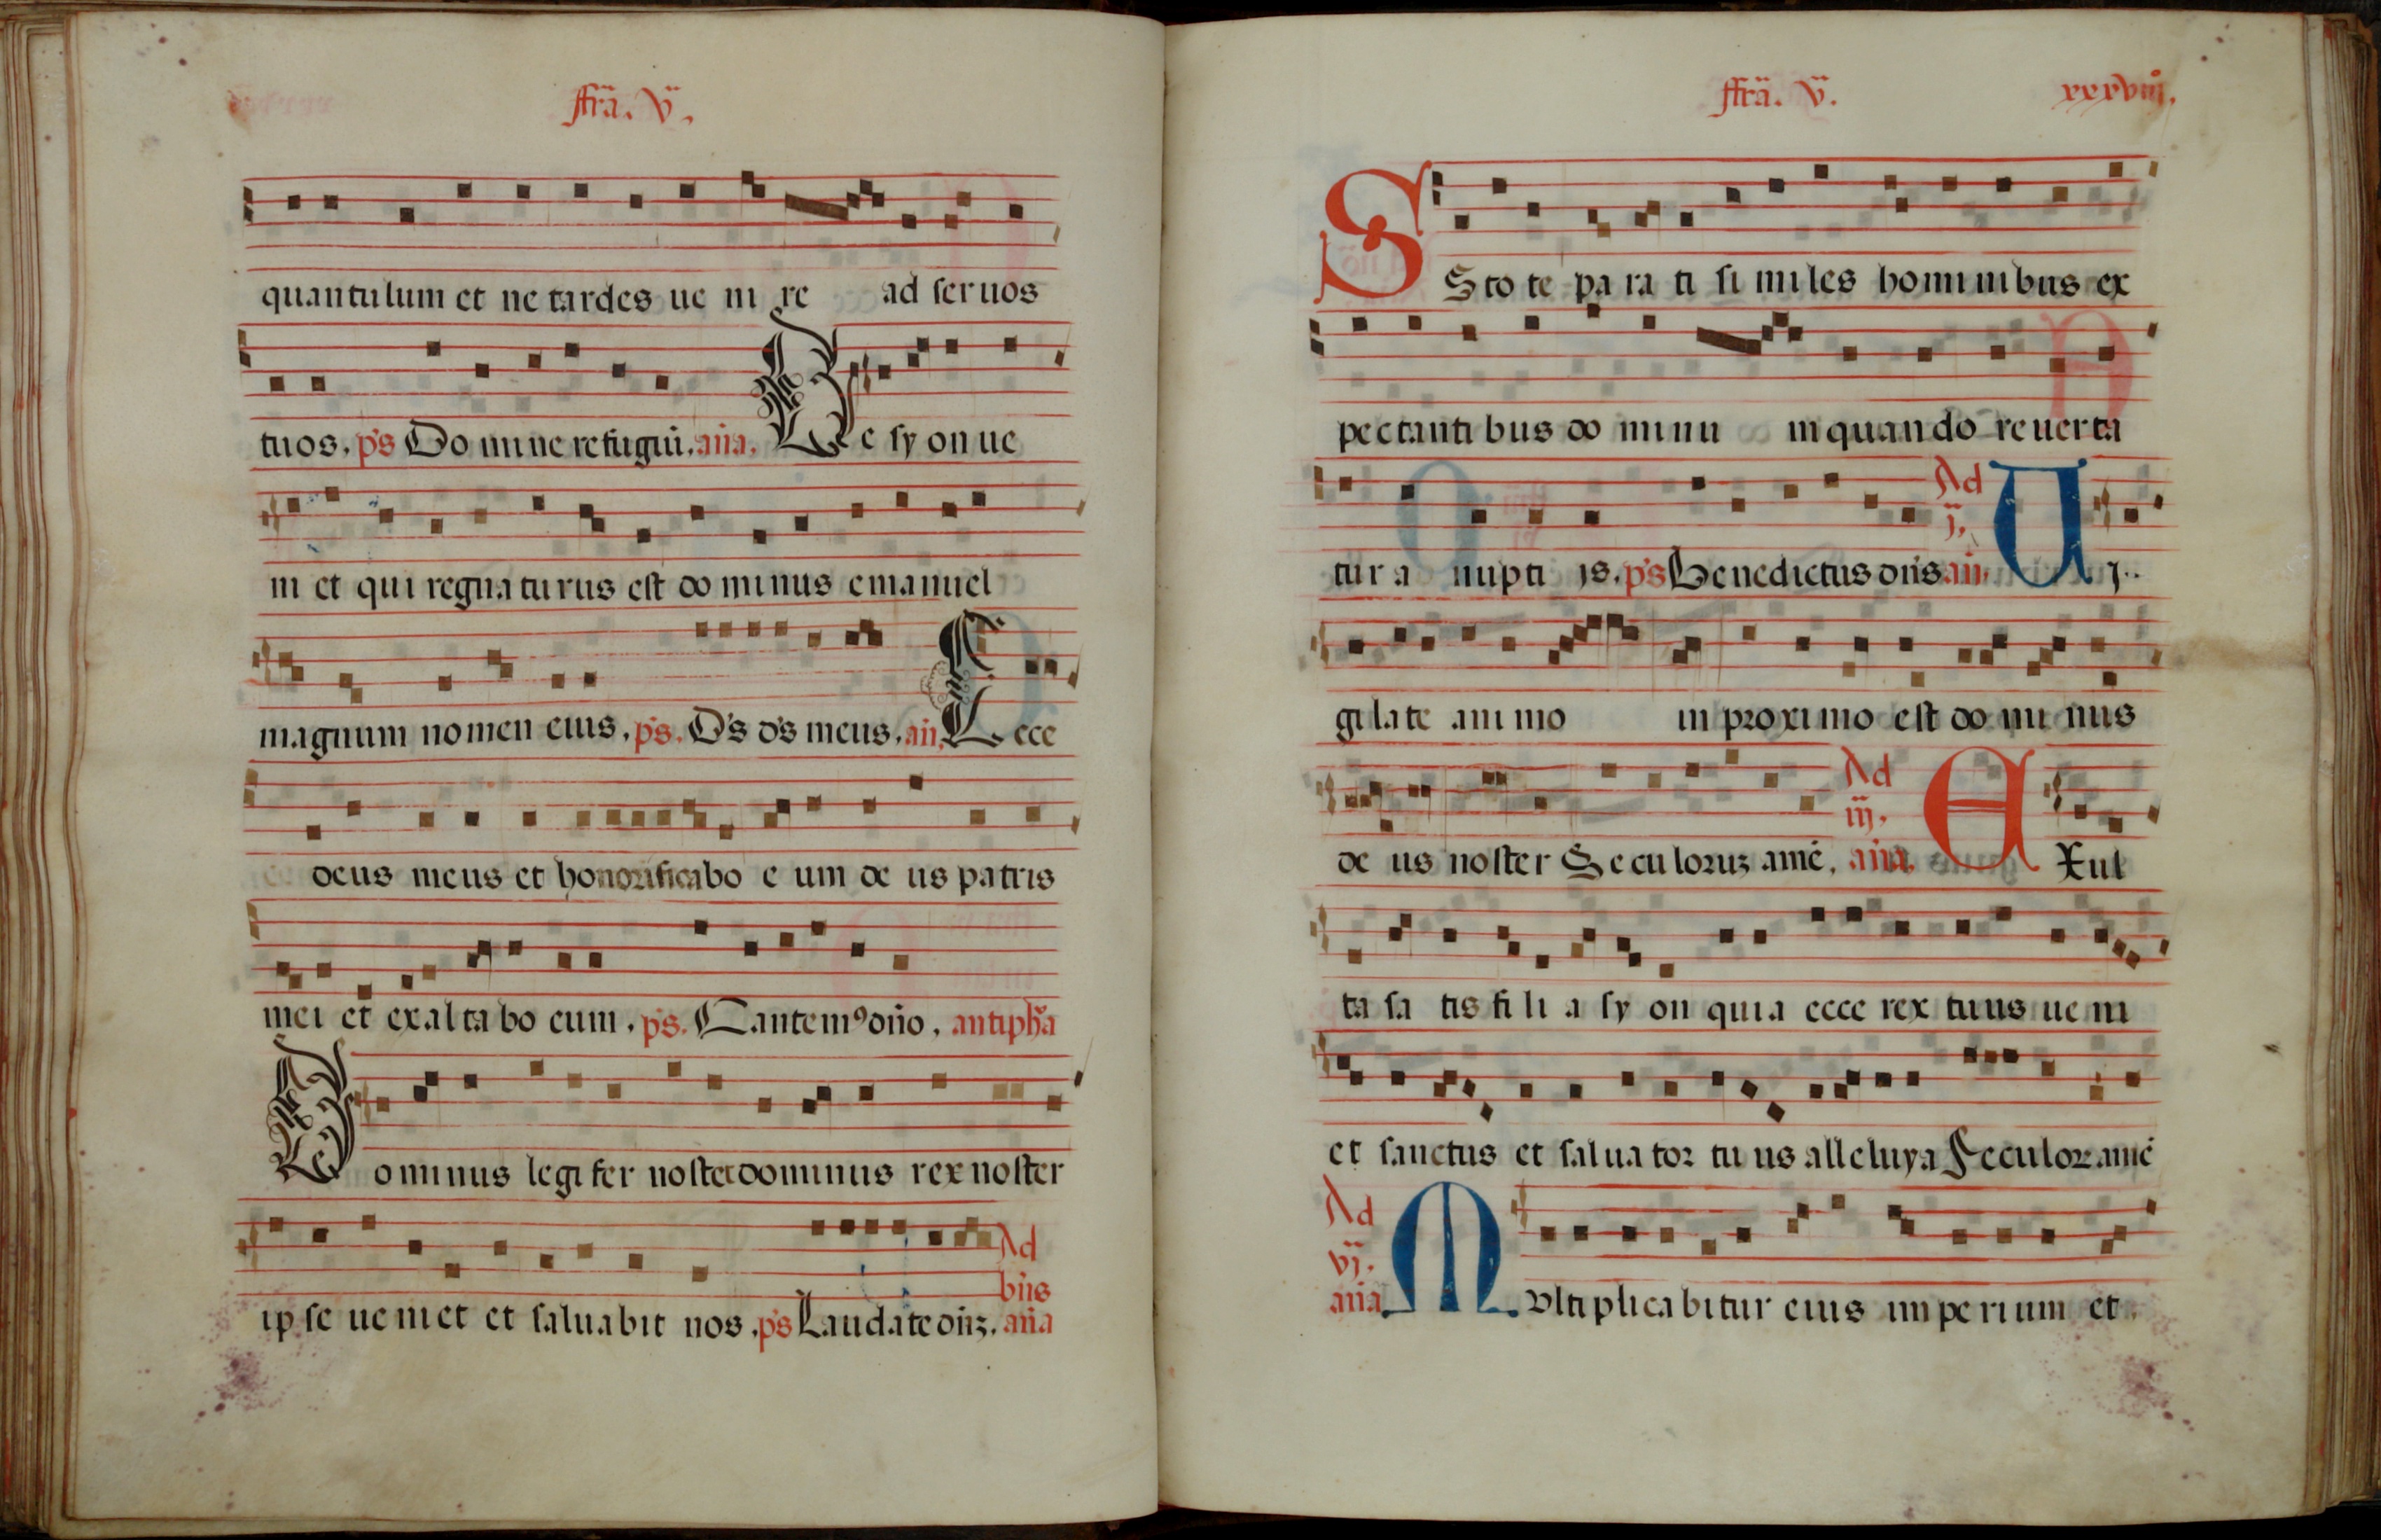 ffrã. v.
quantulum et ne tardes ue ni re ad seruos
tuos. p̃s Do mi ne refugiũ. añа. De sy on ue
ni et qui regnaturus est do mi nus emanuel
magnum nomen eius. p̃s. D̃s d̃s meus. añ. Ecce
deus meus et honorificabo e um de us patris
mei et exal ta bo eum. p̃s. Cantem⁹ dño. antiph̃a
Dominus legi fer noster dominus rex noster
Ad
bñs
ip se ueniet et saluabit nos. p̃s Laudate dñꝫ. aña
ffrã. v.
xxxviij.
S Sto te pa ra ti si mi les hominibus ex
pectanti bus do minu m quando reuerta
Ad
j.
tur a nupti js. p̃s Benedictus dñs añ. Ui j..
gilate animo in proximo est do mi nus
Ad
iij.
de us noster Seculoruꝫ amẽ. aña. EXul
ta sa tis fi li a sy on quia ecce rex tuus ue ni
et sanctus et saluator tu us alleluya Seculoꝝ amẽ
Ad
vj.
aña Multiplicabitur eius imperium et